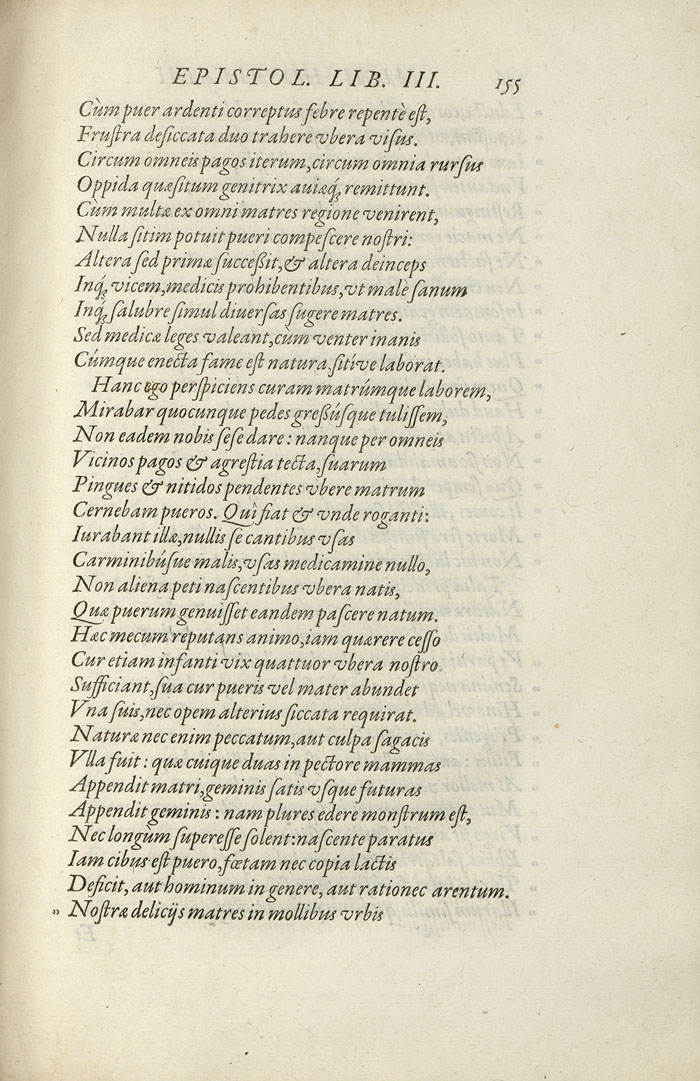 EPISTOL. LIB. III. 155
Cùm puer ardenti correptus febre repentè est,
Frustra desiccata duo trahere vbera visus.
Circum omneis pagos iterum, circum omnia rursus
Oppida quæsitum genitrix auiæq́; remittunt.
Cùm multæ ex omni matres regione venirent,
Nulla sitim potuit pueri compescere nostri:
Altera sed primæ successit, & altera deinceps
Inq́; vicem, medicis prohibentibus, vt malè sanum
Inq́; salubre simul diuersas sugere matres.
Sed medicæ leges valeant, cùm venter inanis
Cúmque enecta fame est natura, sitíve laborat.
Hanc ego perspiciens curam matrúmque laborem,
Mirabar quocunque pedes gressúsque tulissem,
Non eadem nobis sese dare: nanque per omneis
Vicinos pagos & agrestia tecta, suarum
Pingues & nitidos pendentes vbere matrum
Cernebam pueros. Quì fiat & vnde roganti:
Iurabant illæ, nullis se cantibus vsas
Carminibúsue malis, vsas medicamine nullo,
Non aliena peti nascentibus vbera natis,
Quæ puerum genuisset eandem pascere natum.
Hæc mecum reputans animo, iam quærere cesso
Cur etiam infanti vix quattuor vbera nostro
Sufficiant, sua cur pueris vel mater abundet
Vna suis, nec opem alterius siccata requirat.
Naturæ nec enim peccatum, aut culpa sagacis
Vlla fuit: quæ cuique duas in pectore mammas
Appendit matri, geminis satis vsque futuras
Appendit geminis: nam plures edere monstrum est,
Nec longùm superesse solent: nascente paratus
Iam cibus est puero, fœtam nec copia lactis
Deficit, aut hominum in genere, aut ratione carentum.
» Nostræ delicijs matres in mollibus vrbis